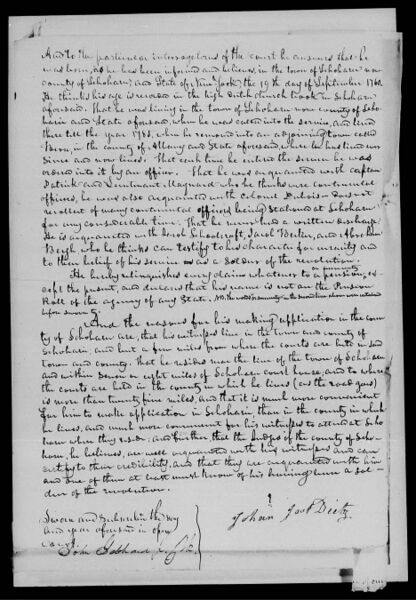 And to the particular interrogatories of the court he answers that he
was born, as he has been informed and believes, in the town of Schoharie now
county of Schoharie and State of New York, the 19th day of September 1760.
He thinks his age is recorded in the high dutch church book in Schoharie
aforesaid. That he was living in the town of Schoharie now county of Scho-
harie and State aforesaid, when he was called into the service, and lived
there till the year 1783, when he removed into an adjoining town called
Bern, in the county of Albany and State aforesaid, where he has lived ever
since and now lives. That each time he entered the service he was
ordered into it by an officer. That he was acquainted with captain
Patrick and Lieutenant Maynard who he thinks were continental
officers, he was also acquainted with Colonel Dubois does not
recollect of many continental officers being stationed at Schoharie
for any considerable time. That he never had a written discharge
He is acquainted with Jacob Schoolcraft, Jacob Becker, and Abraham
Bergh, who he thinks can testify to his character for veracity and
to their belief of his service as a soldier of the revolution.
He hereby relinquishes every claim whatever to a pension or annuity, ex-
cept the present, and declares that his name is not on the Pension
Roll of the agency of any State.
before sworn to
And the reasons for his making application in the coun-
ty of Schoharie are, that his witnesses live in the town and county of
Schoharie, and but a few miles from where the courts are held in said
town and county. That he resides near the line of the town of Schoharie
and within seven or eight miles of Schoharie court house, and to where
the courts are held in the county in which he lives (as the road goes)
is more than twenty five miles, and that it is much more convenient
for him to make application in Schoharie, than in the county in which
he lives, and much more convenient for his witnesses to attend at Scho
harie where they reside; and further, that the Judges of the county of Scho-
harie, he believes, are well acquainted with his witnesses and can
certify to their credibility, and that they are acquainted with him
and one of them at least must know of his having been a sol-
dier of the revolution.
Sworn and Subscribed the day
and year aforesaid in open
court
John Gebhard Jr Clk
Johan Jost Dietz